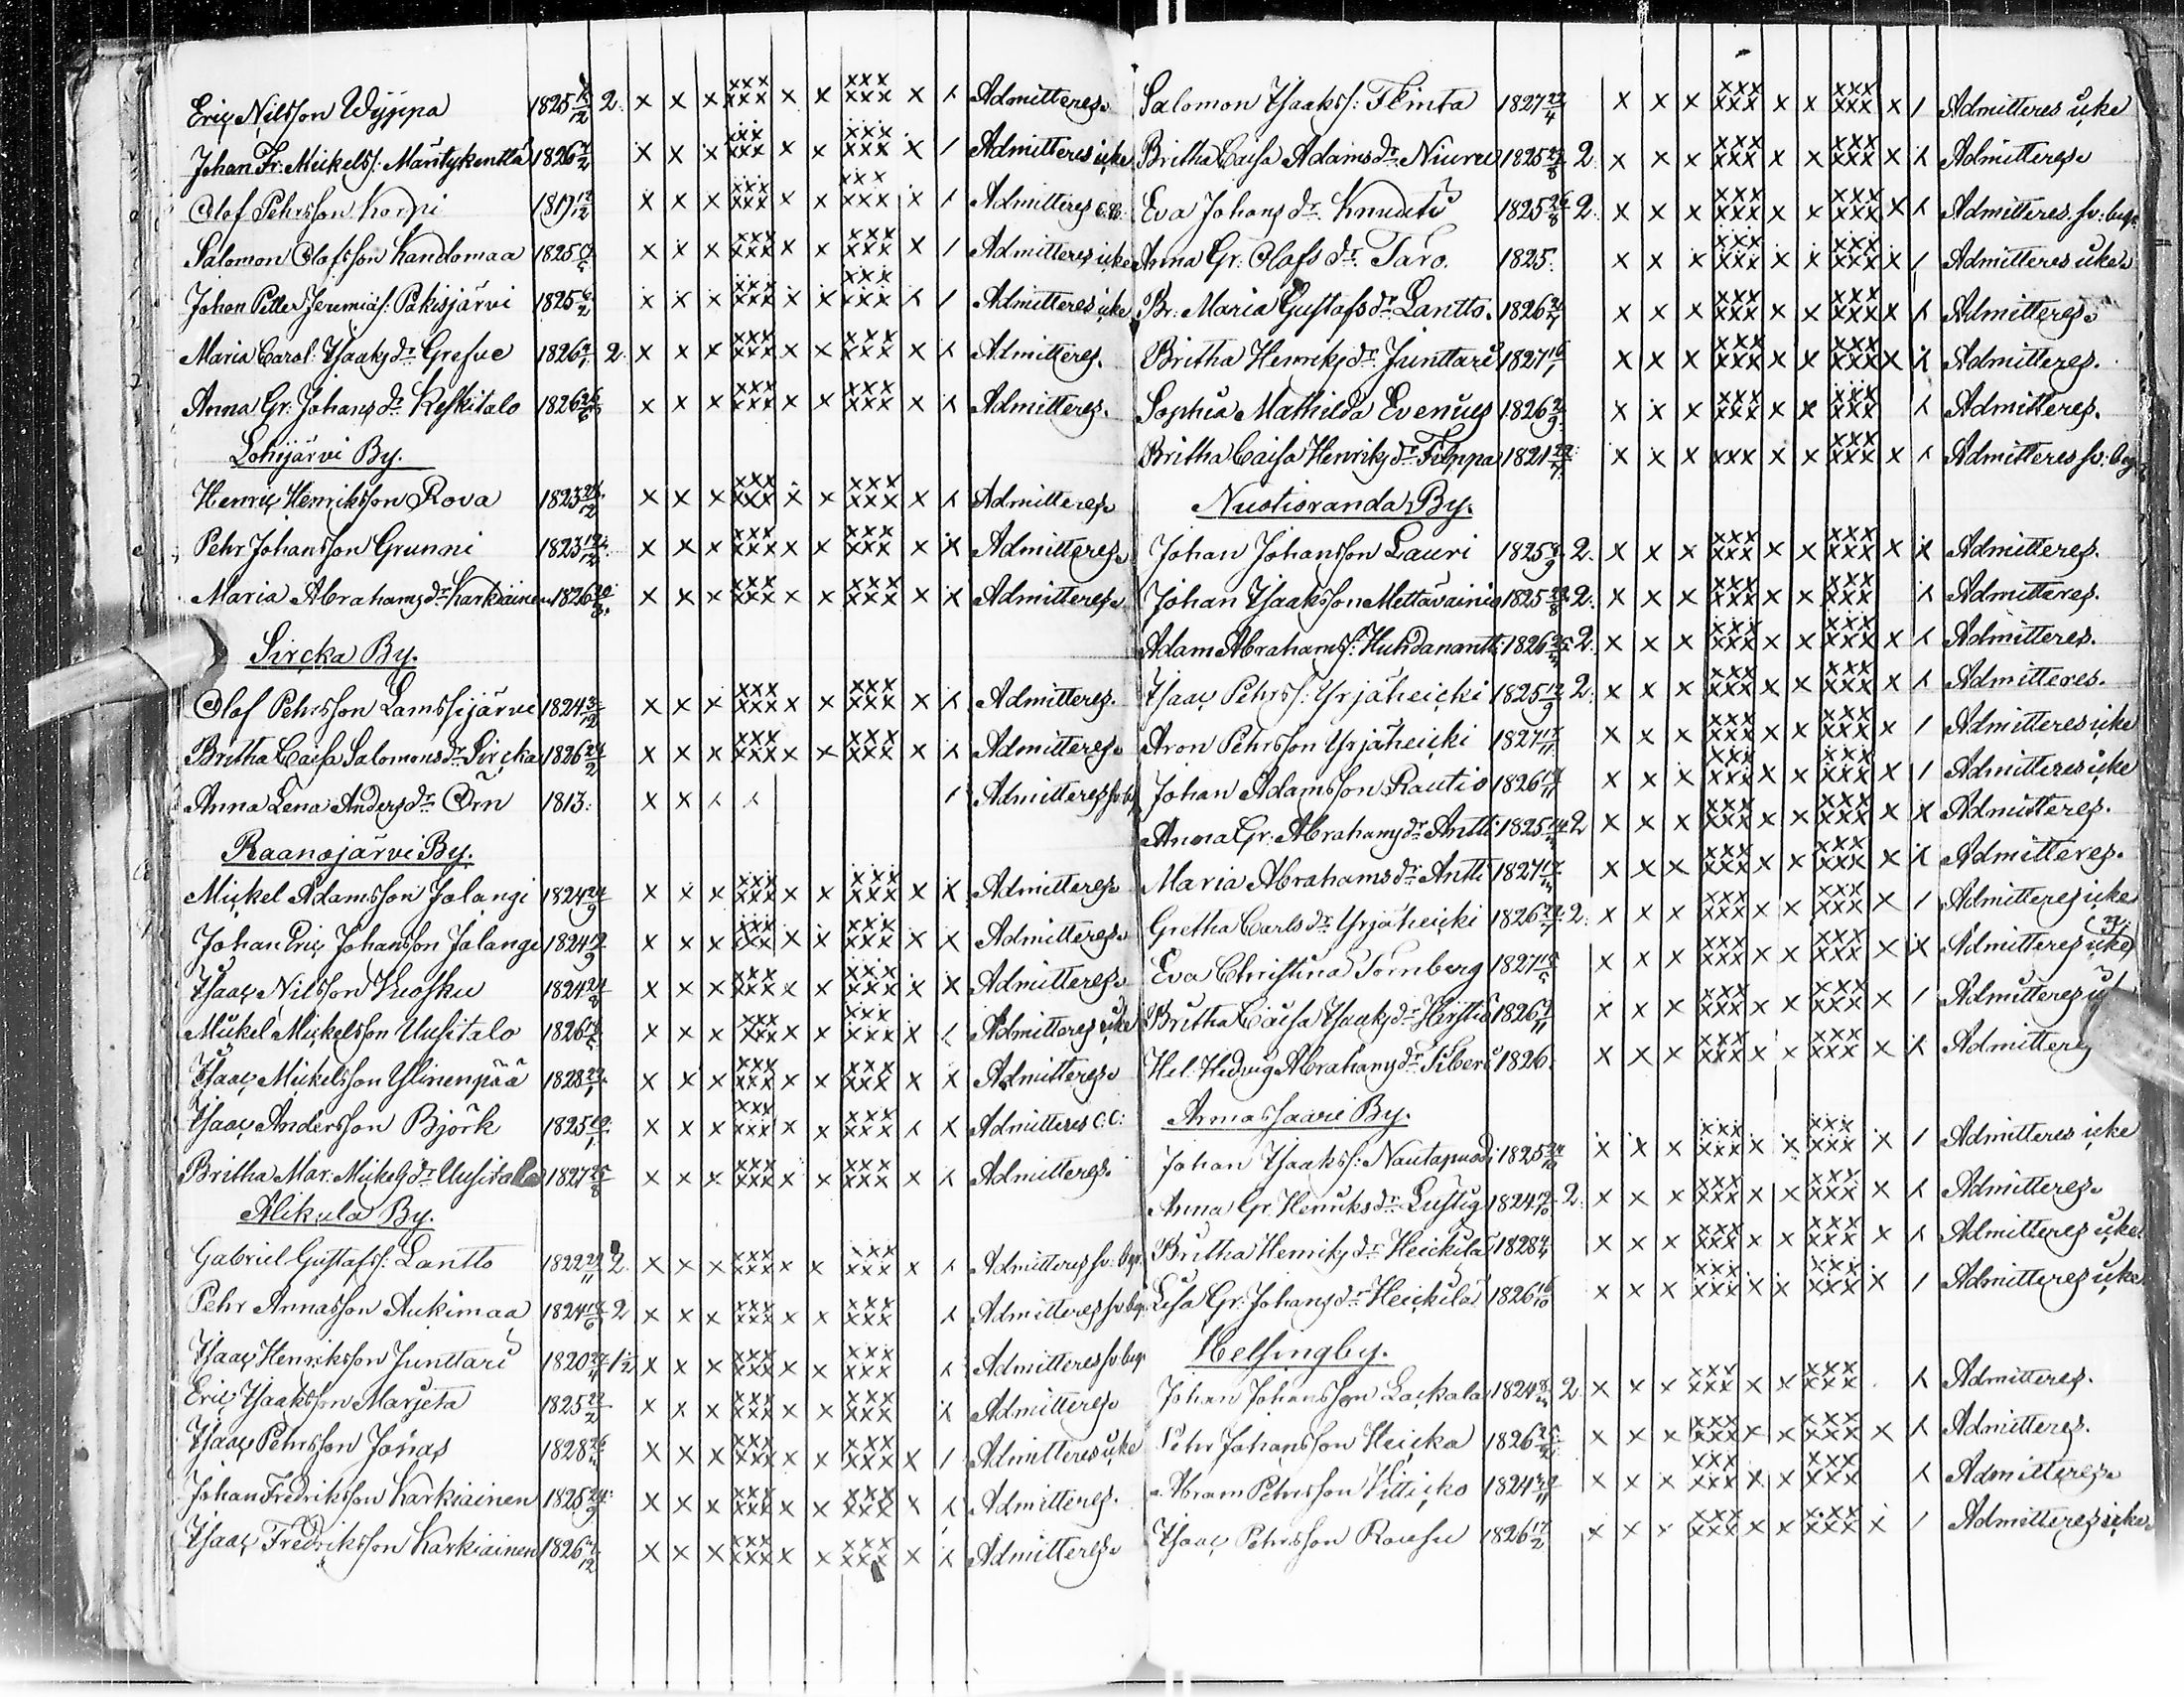 Eric Nilsson Wyppa 1825 2. x x x xxx xxx x x xxx xxx x Admitteres.
Johan Fr. Mickels: Mäntykenttä 1826 x x x xxx xxx x x xxx xxx x 1 Admitteres icke
Olof Pehrsson Korpi 1819 x x x xxx xxx x x xxx xxx x 1 Admitteres
Salomon Olofsson Kandomaa 1825 x x x xxx xxx x x xxx xxx x 1 Admitteres icke
Johan Petter Jeremias: Pakisjärvi 1825 x x x xxx xxx x x xxx xxx x 1 Admitteres icke
Maria Carol: Isaaks dr Grefve 1826 2 x x x xxx xxx x x xxx xxx x Admitteres.
Anna Gr: Johans dr Keskitalo 1826 x x x xxx xxx x x xxx xxx x Admitteres.
Lohijärvi By.
Henric Henriksson Rova 1823 x x x xxx xxx x x xxx xxx x Admitteres
Pehr Johansson Grunni 1823 x x x xxx xxx x x xxx xxx x x Admitteres
Maria Abrahams dr Karkiainen 1826 x x x xxx xxx x x xxx xxx x x Admitteres
Sircka By.
Olof Pehrsson Lamssijärvi 1824 3/12 x x x xxx xxx x x xxx xxx x Admitteres.
Britha Caisa Salomons dr Sircka 1826 x x x xxx xxx x x xxx xxx x Admitteres
Anna Lena Anders dr Örn 1813. x x 1 Admitteres
Raanojärvi By.
Mickel Adamsson Jolangi 1824 24/9 x x x xxx xxx x x xxx xxx x x Admitteres
Johan Eric Johansson Jolangi 1824 x x x xxx xxx x x xxx xxx x x Admitteres
Isaac Nilsson Kuosku 1824 x x x xxx xxx x x xxx xxx x x Admitteres
Mickel Mickelsson Uusitalo 1826 x x x xxx xxx x x xxx xxx x Admitteres icke
Isaac Mickelsson Ylinenpää 1828 x x x xxx xxx x x xxx xxx x x Admitteres
Isaac Andersson Björk 1825 x x x xxx xxx x x xxx xxx x Admitteres C.C:
Britha Mar: Mickels dr Uusitalo 1827 25/8 x x x xxx xxx x x xxx xxx x Admitteres.
Alikula By.
Gabriel Gustafs: Lantto 1822 2 x x x xxx xxx x x xxx xxx x Admitteres sv: begr
Pehr Annasson Aukimaa 1824 2 x x x xxx xxx x x xxx xxx Admitteres sv: beg.
Isaac Henriksson Junttari 1820 x x x xxx xxx x x xxx xxx Admitteres sv. begr
Eric Isaaksson Marjeta 1825 22/2 x x x xxx xxx x x xxx xxx Admitteres
Isaac Pehrsson Jonas 1828 x x x xxx xxx x x xxx xxx x 1 Admitteres icke
Johan Fredriksson Karkiainen 1825 24/9 x x x xxx xxx x x xxx xxx x Admitteres.
Isaac Fredriksson Karkiainen 1826 x x x xxx xxx x x xxx xxx x Admitteres
Salomon Isaaks: Flinta 1827 x x x xxx xxx x x xxx xxx x 1 Admitteres icke
Britha Caisa Adams dr Niuru 1825 2 x x x xxx xxx x x xxx xxx x Admitteres
Eva Johans dr Knuuti 1825 2. x x x xxx xxx x x xxx xxx x Admitteres. sv: begr.
Anna Gr: Olofs dr Taro. 1825. x x x xxx xxx x x xxx xxx x 1 Admitteres icke
Br: Maria Gustafs dr Lantto. 1826 x x x xxx xxx x x xxx xxx x Admitteres
Britha Henriks dr Junttari 1827 x x x xxx xxx x x xxx xxx x x Admitteres.
Sophia Mathilda Evenius 1826 x x x xxx xxx x x xxx xxx Admitteres.
Britha Caisa Henriks dr Filppa 1821 x x x xxx x x xxx xxx x Admitteres sv: begr
Nuotioranda By.
Johan Johansson Lauri 1825 2. x x x xxx xxx x x xxx xxx x x Admitteres.
Johan Isaaksson Mettävainio 1825 2. x x x xxx xxx x x xxx xxx Admitteres.
Adam Abrahams: Huhdanantti 1826 2. x x x xxx xxx x x xxx xxx x Admitteres.
Isaac Pehrs: Yrjäheicki 1825 2. x x x xxx xxx x x xxx xxx x Admitteres.
Aron Pehrsson Yrjäheicki 1827 x x x xxx xxx x x xxx xxx x 1 Admitteres icke
Johan Adamsson Rautio 1826 x x x xxx xxx x x xxx xxx x 1 Admitteres icke
Anna Gr: Abrahams dr Antti 1825 2 x x x xxx xxx x x xxx xxx x x Admitteres.
Maria Abrahams dr Antti 1827 x x x xxx xxx x x xxx xxx x x Admitteres.
Gretha Carls dr Yrjäheicki 1826 2. x x x xxx xxx x x xxx xxx x 1 Admitteres icke
Eva Christina Tornberg 1827 x x x xxx xxx x x xxx xxx x x Admitteres (icke)
Britha Caisa Isaaks dr Hirstiö 1826 x x x xxx xxx x x xxx xxx x 1 Admitteres
Hel: Hedvig Abrahams dr Siberi 1826. x x x xxx xxx x x xxx xxx x x Admitteres
Armassaari By.
Johan Isaaks: Nautapuodi 1825 x x x xxx xxx x x xxx xxx x 1 Admitteres icke
Anna Gr: Henriks dr Lustig 1824 2. x x x xxx xxx x x xxx xxx x Admitteres
Britha Henriks dr Heickilä 1828 x x x xxx xxx x x xxx xxx x Admitteres icke
Lisa Gr: Johans dr Heickilä 1826 16/10 x x x xxx xxx x x xxx xxx x 1 Admitteres icke
Helsingby.
Johan Johansson Lackala 1824 2 x x x xxx xxx x x xxx xxx Admitteres.
Pehr Johansson Heicka 1826 x x x xxx xxx x x xxx xxx x Admitteres.
Abram Pehrsson Vitticko 1824 x x x xxx xxx x x xxx xxx Admitteres
Isaac Pehrsson Rousu 1826 17/2 x x x xxx xxx x x xxx xxx x 1 Admitteres icke